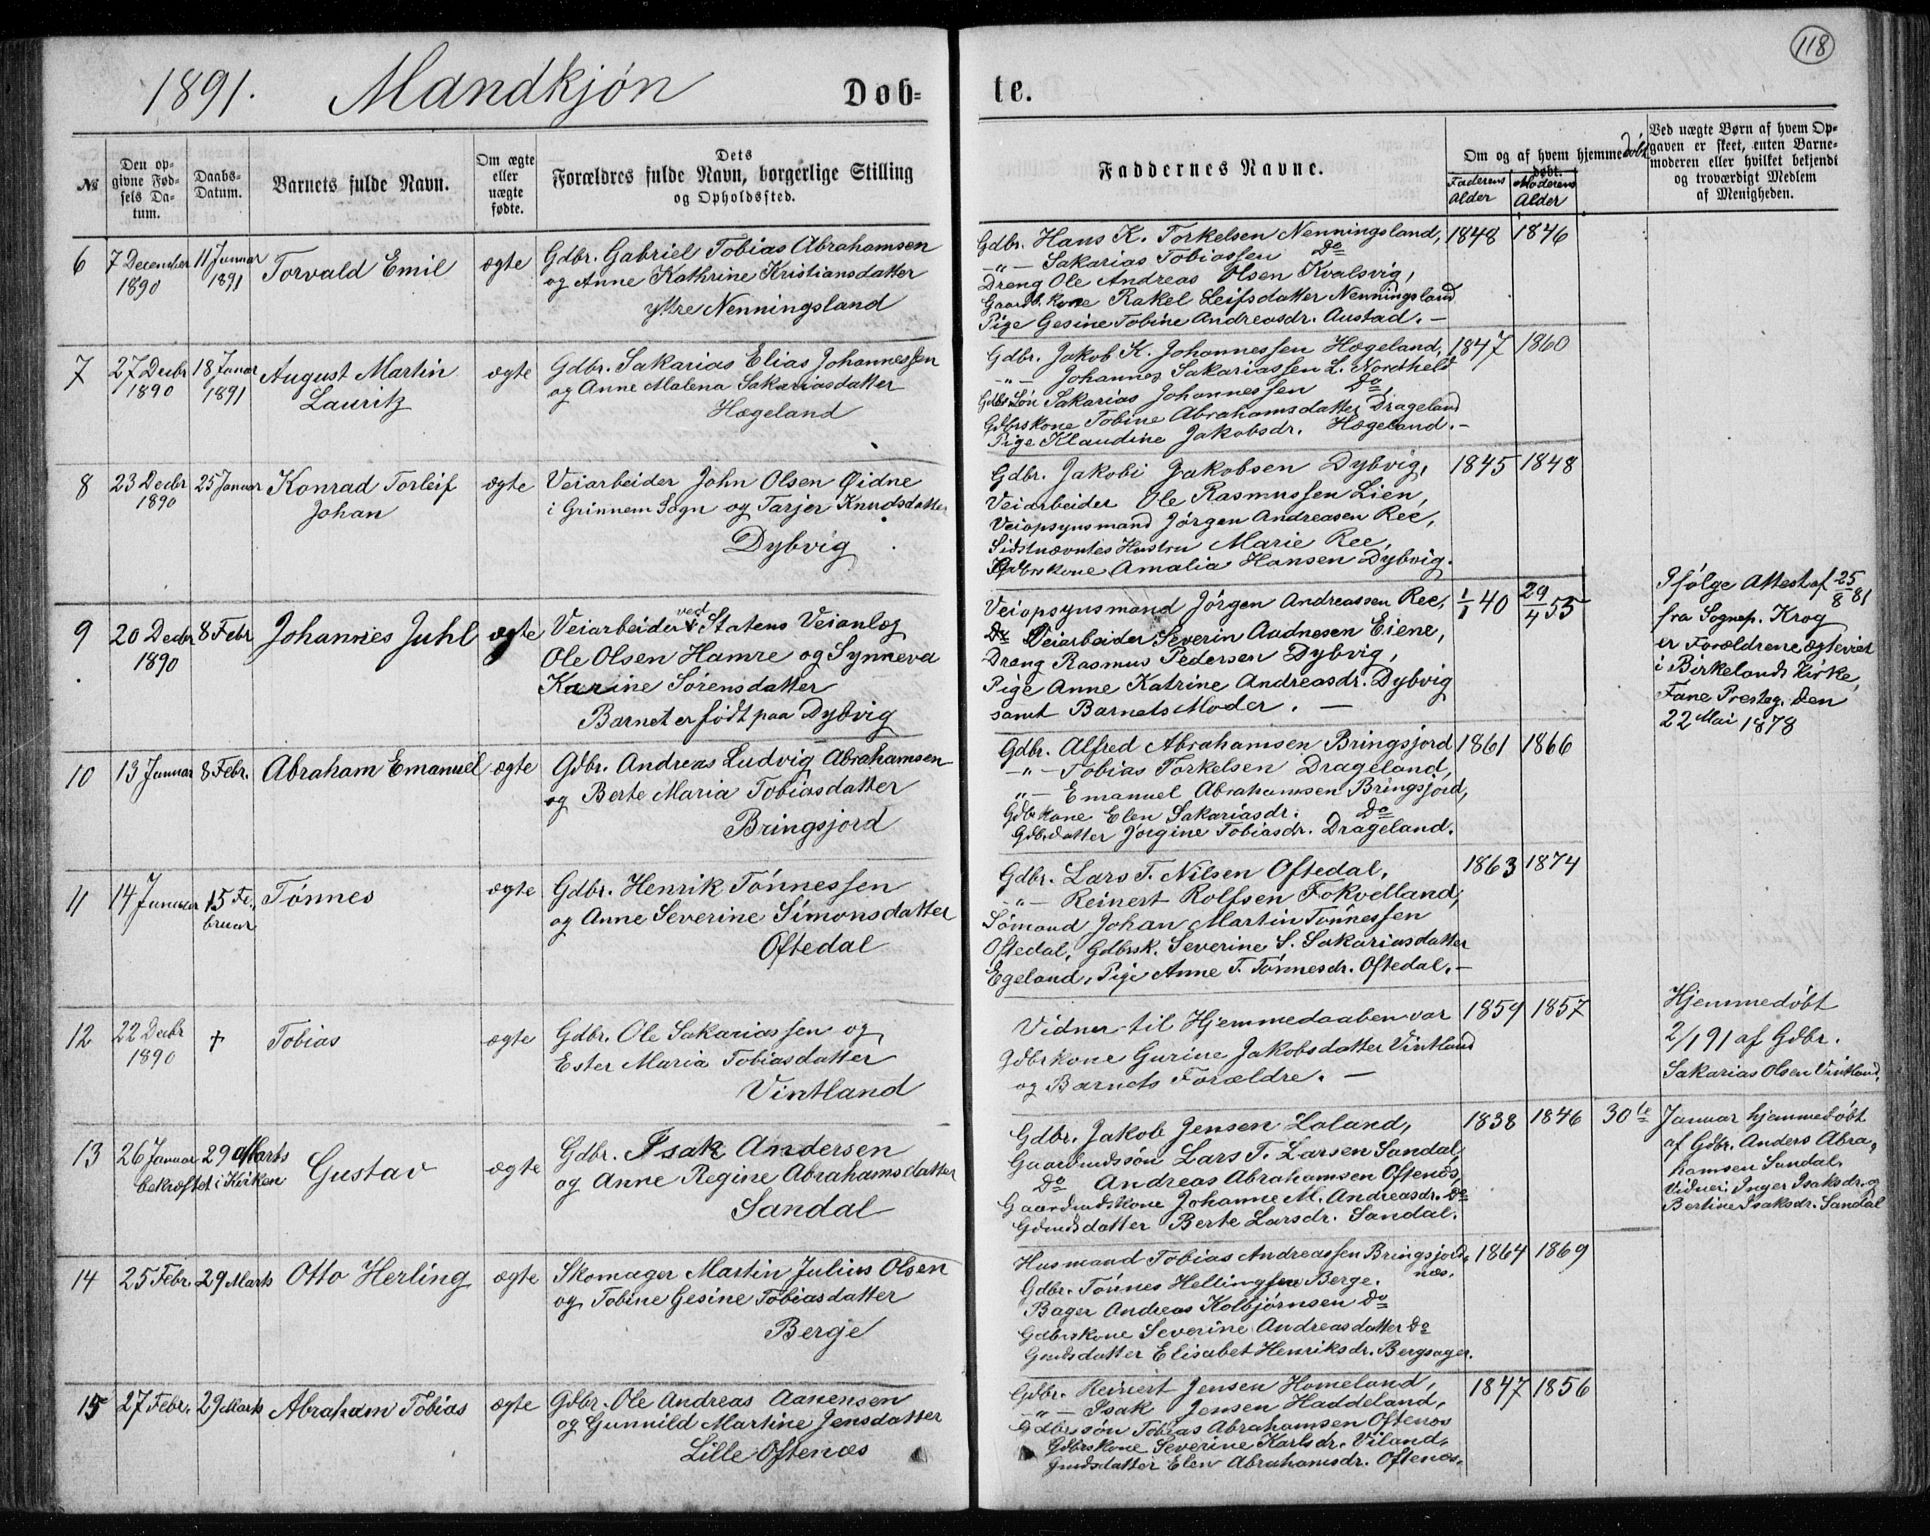 118
1891. Mandkjøn Døb- te.
№
Den op-
givne Fød-
sels Da-
tum.
Daabs-
Datum.
Barnets fulde Navn.
Om ægte
eller
uægte
fødte.
Dets
Forældres fulde Navn, borgerlige Stilling
og Opholdssted.
Faddernes Navne.
Om og af hvem hjemmedøbt
døbt.
Faderens
Alder
Moderens
Alder
Ved uægte Børn af hvem Op-
gaven er skeet, enten Barne-
moderen eller hvilket bekjendt
og troværdigt Medlem
af Menigheden.
6
7 December
1890
11 Januar
1891
Torvald Emil
ægte
Gdbr. Gabriel Tobias Abrahamsen
og Anne Kathrine Kristiansdatter
ytre Nenningsland
Gdbr. Hans K. Torkelsen Nenningsland,
-"- Sakarias Tobiassen Do
Dreng Ole Andreas Olsen Kvalsvig,
Gaardb. kone Rakel Leifsdatter Nenningsland
Pige Gesine Tobine Andreasdr. Austad. -
1848
1846
7
27 Decbr
1890
18 Januar
1891
August Martin
Lauritz
ægte
Gdbr. Sakarias Elias Johannessen
og Anne Malena Sakariasdatter
Hægeland
Gdbr. Jakob K. Johannessen Hægeland,
-"- Johannes Sakariassen L. Nordhelt
Gdbrs Søn Sakarias Johannessen Do,
Gdbrskone Tobine Abrahamsdatter Drageland
Pige Klaudine Jakobsdr. Hægeland. -
1847
1860
8
23 Decbr
1890
25 Januar
Konrad Torleif
Johan
ægte
Veiarbeider John Olsen Øidne
i Grinnem Sogn og Tarjer Knudsdatter
Dybvig
Gdbr. Jakobi Jakobsen Dybvig,
Veiarbeider Ole Rasmussen Lien,
Veiopsynsmand Jørgen Andreasen Ree,
Sidstnævntes Hustru Marie Ree,
Gdbrskone Amalia Hansen Dybvig.
1845
1848
9
20 Decbr
1890
8 Febr
Johannes Juhl
ægte
Veiarbeider ved Statens Veianlæg
Ole Olsen Hamre og Synneva
Karine Sørensdatter
Barnet er født paa Dybvig
Veiopsynsmand Jørgen Andreassen Ree,
Do Veiarbeider Severin Audnesen Eiene,
Dreng Rasmus Pedersen Dybvig,
Pige Anne Katrine Andreasdr. Dybvig
samt Barnets Moder. -
1/1 40
29/4 55
Ifølge Attest af 25/8 81
fra Sognep. Krog
er Forældrene ægteviet
i Birkelands Kirke,
Fane Presteg. den
22 Mai 1878
10
13 Januar
8 Febr.
Abraham Emanuel
ægte
Gdbr. Andreas Ludvig Abrahamsen
og Berte Maria Tobiasdatter
Bringsjord
Gdbr. Alfred Abrahamsen Bringsjord
-"- Tobias Torkelsen Drageland,
"- Emanuel Abrahamsen Bringsjord,
Gdbrkone Elen Sakariasdr. Do
Gdbrdatter Jørgine Tobiasdr. Drageland.
1861
1866
11
14 Januar
15 Fe-
bruar
Tønnes
ægte
Gdbr. Henrik Tønnessen
og Anne Severine Simonsdatter
Oftedal
Gdbr. Lars T. Nilsen Oftedal,
-"- Reinert Rolfsen Fokvelland,
Sømand Johan Martin Tønnessen
Oftedal, Gdbrsk. Severine S. Sakariasdatter
Egeland, Pige Anne T. Tønnesdr. Oftedal. -
1863
1874
12
22 Decbr
1890
†
Tobias
ægte
Gdbr. Ole Sakariassen og
Ester Maria Tobiasdatter
Vintland
Vidner til Hjemmedaaben var
Gdbrkone Gurine Jakobsdatter Vintland
og Barnets Forældre. -
1859
1857
Hjemmedøbt
2/1 91 af Gdbr.
Sakarias Olsen Vintland,
13
26 Januar
29 Marts
bekræftet i Kirken
Gustav
ægte
Gdbr. Isak Andersen
og Anne Regine Abrahamsdatter
Sandal
Gdbr. Jakob Jensen Laland,
Gaardmdssøn Lars T. Larsen Sandal,
Do Andreas Abrahamsen Oftenæs,
Gaardmdskone Johanne M. Andreasdr. Do
Gdmdsdatter Berte Larsdr. Sandal.
1838
1846
30te
Januar hjemmedøbt
af Gdbr. Anders Abra-
hamsen Sandal.
Vidner: Inger Isaksdr. og
Bertine Isaksdr. Sandal
14
25 Febr.
29 Marts
Otto Herling
ægte
Skomager Martin Julius Olsen
og Tobine Gesine Tobiasdatter
Berge
Husmand Tobias Andreassen Bringsjords-
næs.
Gdbr. Tønnes Hellingsen Berge.
Bager Andreas Kolbjørnsen Do
Gdbrskone Severine Andreasdatter Do
Gmdsdatter Elisabet Henriksdr. Bergsager.
1864
1869
15
27 Febr.
29 Marts
Abraham Tobias
ægte
Gdbr. Ole Andreas Aanensen
og Gunnild Martine Jensdatter
Lille Oftenæs
Gdbr. Reinert Jensen Homeland,
-"- Isak Jensen Haddeland,
Gdbrssøn Tobias Abrahamsen Oftenæs
Gdbrskone Severine Karlsdr. Viland,
Gmdsdatter Elen Abrahamsdr. Oftenæs.
1847
1856